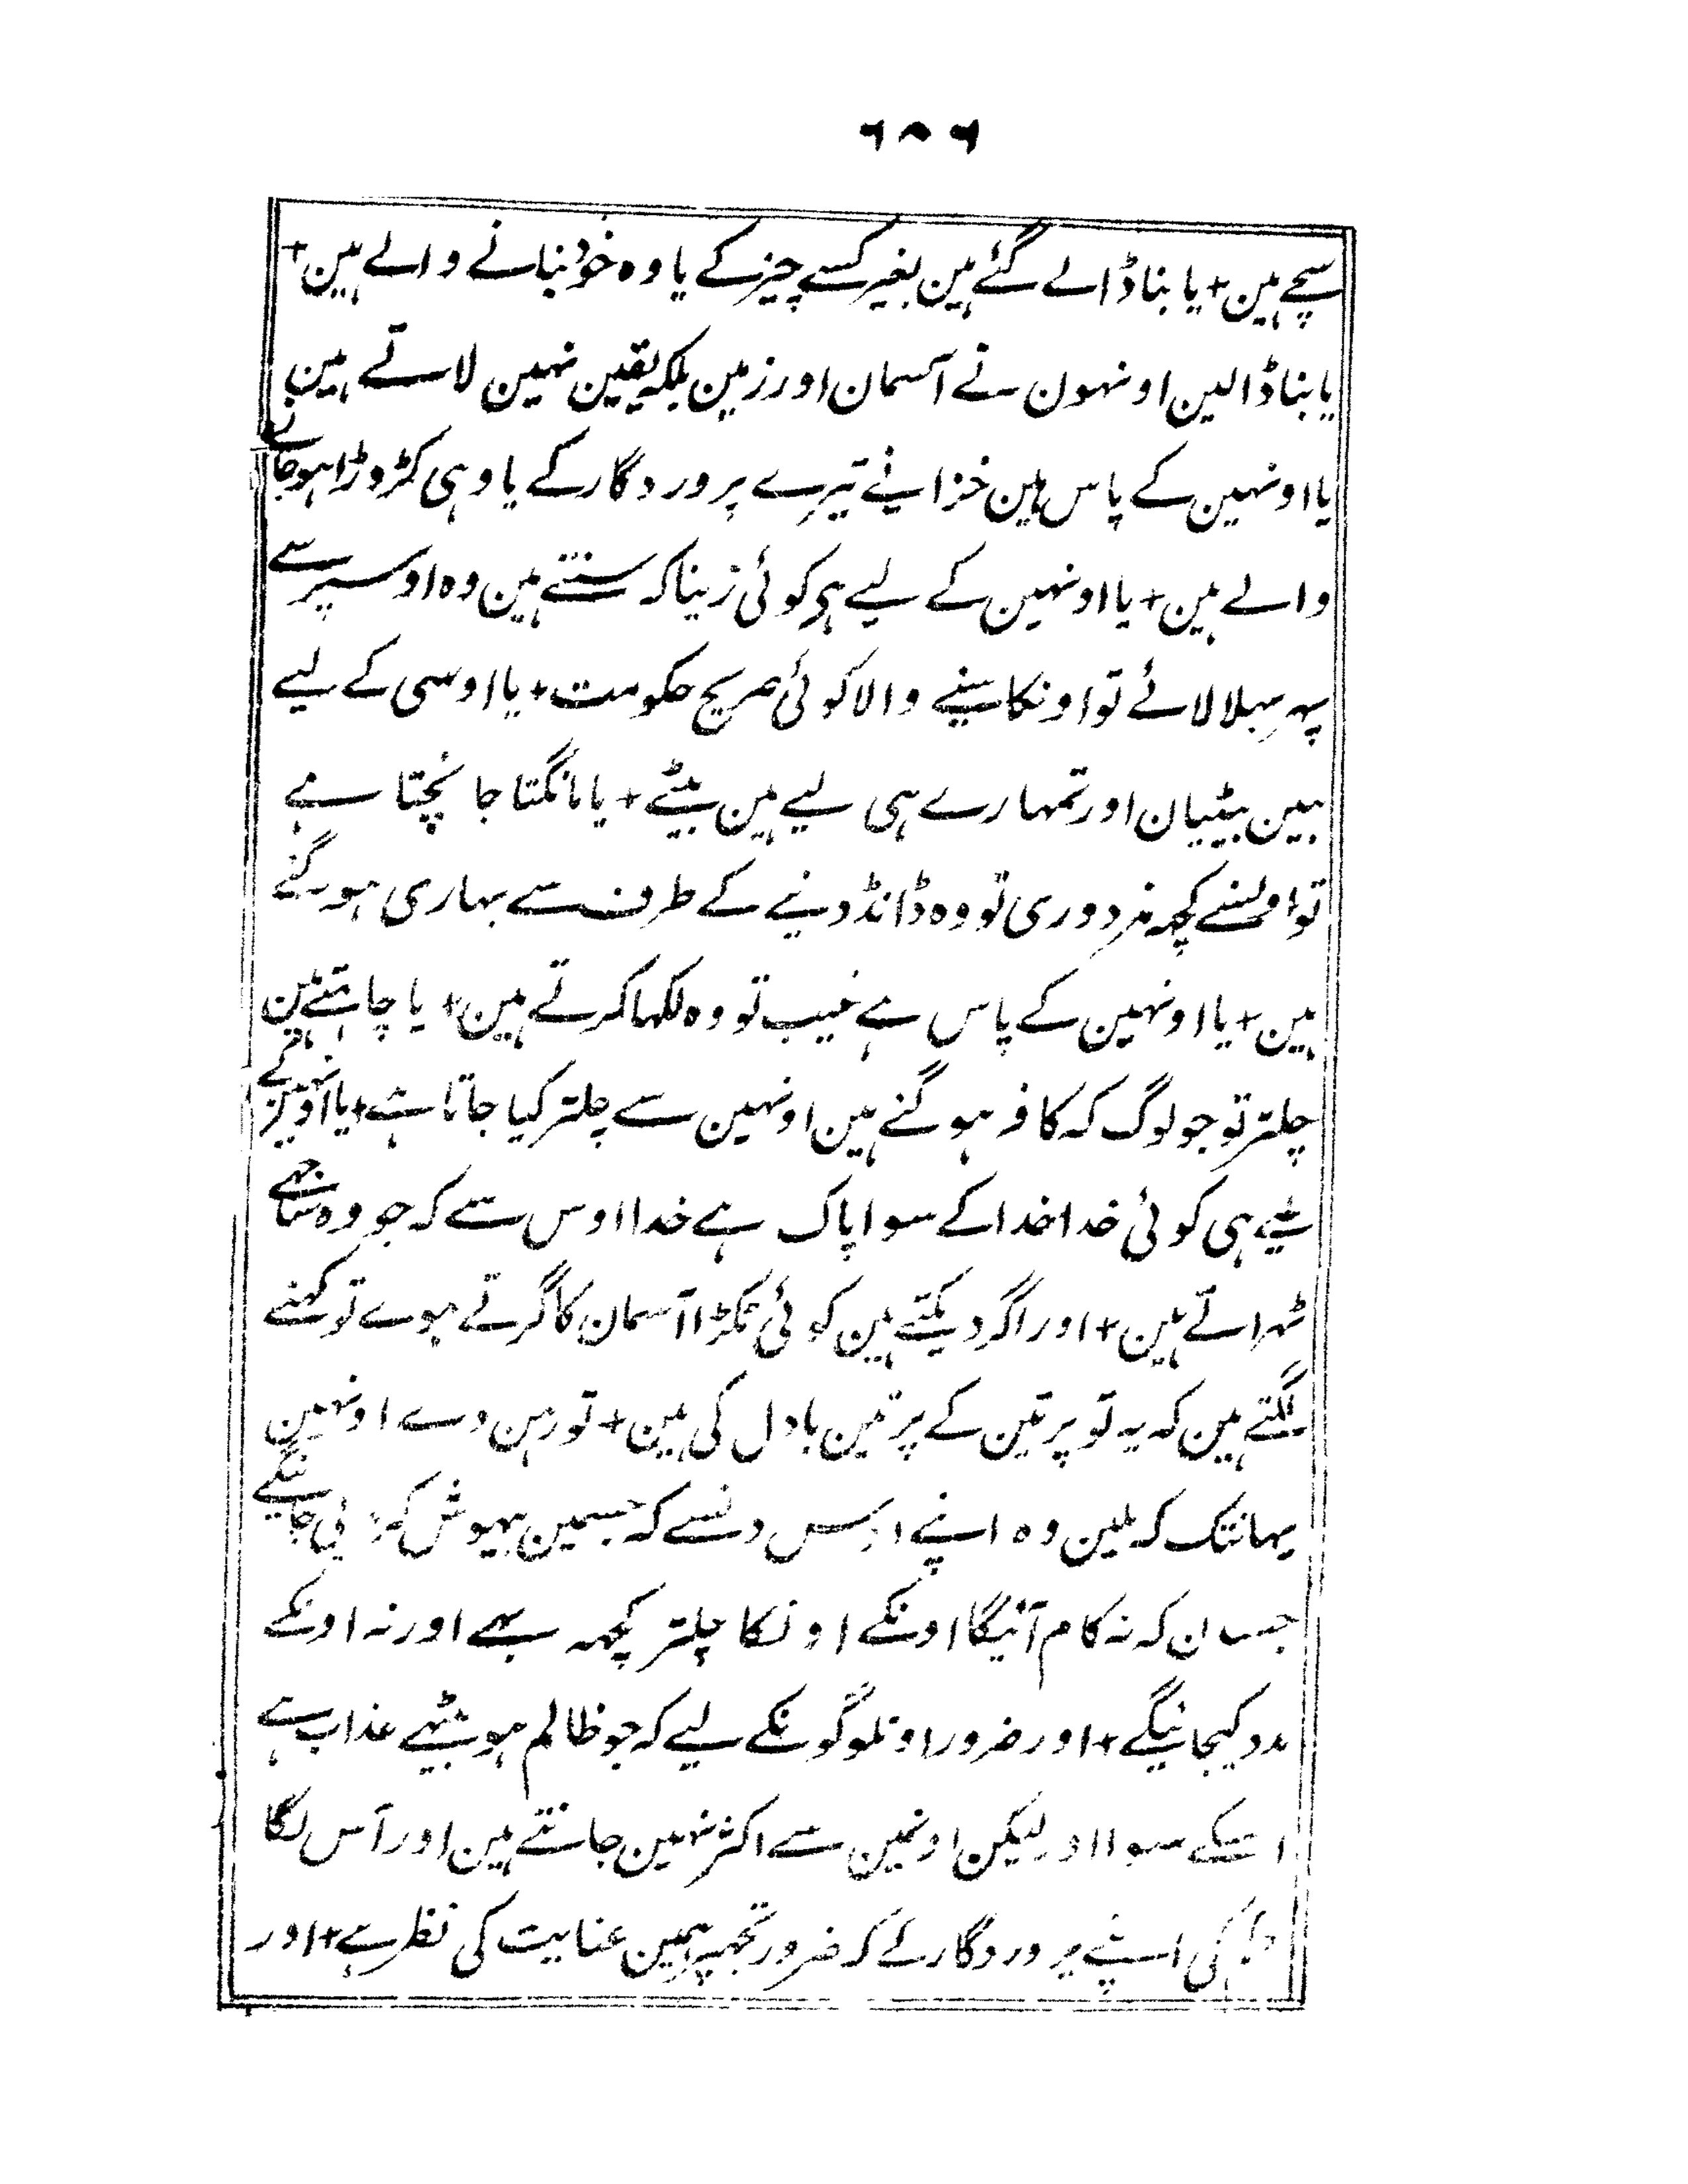 ۶۸۶
سچے ہین + یا بنا ڈالے گئے ہین بغیر کسے چیز کے یا وہ خود بنانے والے ہین +
یا بنا ڈالین اونہون نے آسمان اور زمین بلکہ یقین نہین لاتے ہین
یا اونہین کے پاس ہین خزانے تیرے پروردگار کے یا وہی کڑوڑا ہو جانے
والے ہین + یا اونہین کے لیے ہی کوئی زینا کہ سنتے ہین وہ اوسپر سے
پہر بہلا لائے تو اونکا سننے والا کوئی صریح حکومت + یا اوسی کے لیے
ہین بیٹیان اور تمہارے ہی لیے ہین بیٹے + یا مانگتا جانچتا ہے
تو اونسے کچہہ مزدوری تو وہ ڈانڈ دینے کے طرف سے بہاری ہو گئے
ہین + یا اونہین کے پاس ہے غیب تو وہ لکہا کرتے ہین + یا چاہتے ہین
چلتر تو جو لوگ کہ کافر ہو گئے ہین اونہین سے چلتر کیا جاتا ہے + یا اونہین کے
لیے ہی کوئی خدا خدا کے سوا پاک ہے خدا اوس سے کہ جو وہ ساجہے
ٹہراتے ہین + اور اگر دیکتے ہین کوئی ٹکڑا آسمان کا گرتے ہوے تو کہنے
لگتے ہین کہ یہ تو پرتین کے پرتین بادل کی ہین + تو رہن دے اونہین
یہانتک کہ ملین وہ اپنے اوس دنسے کہ جسمین بیہوش کہ جائینگے
جس دن کہ نہ کام آئیگا اونکے اونکا چلتر کچہہ بہے اور نہ اونکے
مدد کیجائیگے + اور ضرور اونلوگونکے لیے کہ جو ظالم ہو بیٹہے عذاب ہے
اسکے سوا اور لیکن اونمین سے اکثر نہین جانتے ہین اور آس لگا
کی اپنے پروردگار کے کہ ضرور تجہپر ہمین عنایت کی نظر ہے + اور